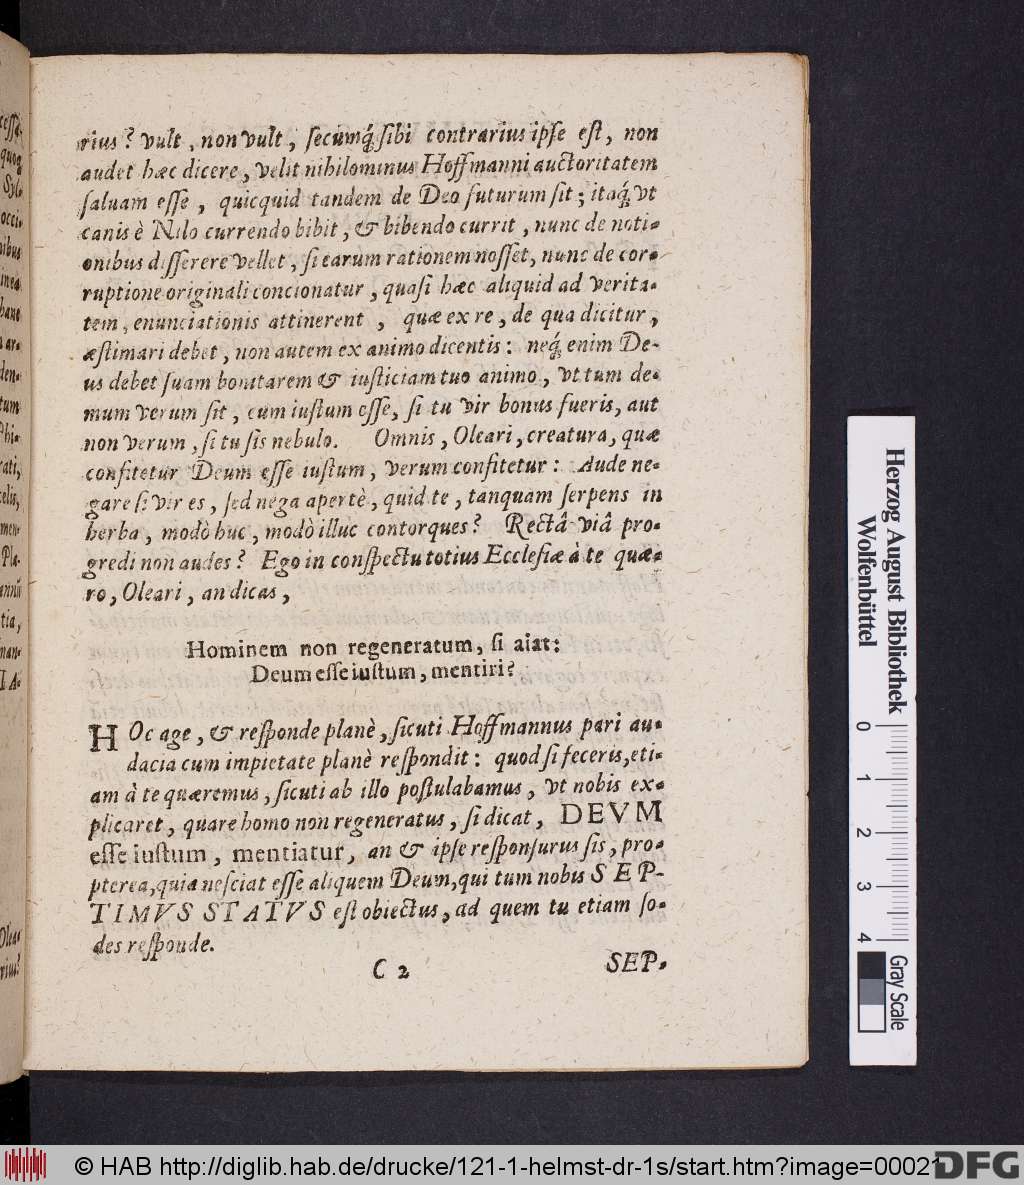 rius? vult, non vult, ſecumq́; ſibi contrarius ipſe eſt, non
audet hæc dicere, velit nihilominus Hoffmanni auctoritatem
ſaluam eſſe, quicquid tandem de Deo futurum ſit; itaq́; vt
canis è Nilo currendo bibit, & bibendo currit, nunc de noti-
onibus diſſerere vellet, ſi earum rationem noſſet, nunc de cor-
ruptione originali concionatur, quaſi hæc aliquid ad verita-
tem, enunciationis attinerent, quæ ex re, de qua dicitur,
æſtimari debet, non autem ex animo dicentis: neq́; enim De-
us debet ſuam bonitatem & iuſticiam tuo animo, vt tum de-
mum verum ſit, eum iuſtum eſſe, ſi tu vir bonus fueris, aut
non verum, ſi tu ſis nebulo. Omnis, Oleari, creatura, quæ
confitetur Deum eſſe iuſtum, verum confitetur: Aude ne-
gare ſi vir es, ſed nega apertè, quid te, tanquam ſerpens in
herba, modò huc, modò illuc contorques? Rectâ viâ pro-
gredi non audes? Ego in conſpectu totius Eccleſiæ à te quæ-
ro, Oleari, an dicas,
Hominem non regeneratum, ſi aiat:
Deum eſſe iuſtum, mentiri?
HOc age, & reſponde planè, ſicuti Hoffmannus pari au-
dacia cum impietate planè reſpondit: quod ſi feceris, eti-
am à te quæremus, ſicuti ab illo poſtulabamus, vt nobis ex-
plicaret, quare homo non regeneratus, ſi dicat, DEVM
eſſe iuſtum, mentiatur, an & ipſe reſponſurus ſis, pro-
pterea, quia neſciat eſſe aliquem Deum, qui tum nobis SEP-
TIMVS STATVS eſt obiectus, ad quem tu etiam ſo-
des reſponde.
C 2 SEP-
Herzog August Bibliothek
Wolfenbüttel
0 1 2 3 4
Gray Scale
© HAB http://diglib.hab.de/drucke/121-1-helmst-dr-1s/start.htm?image=00021
DFG